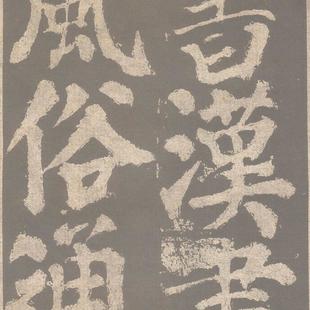 漢書
風俗通